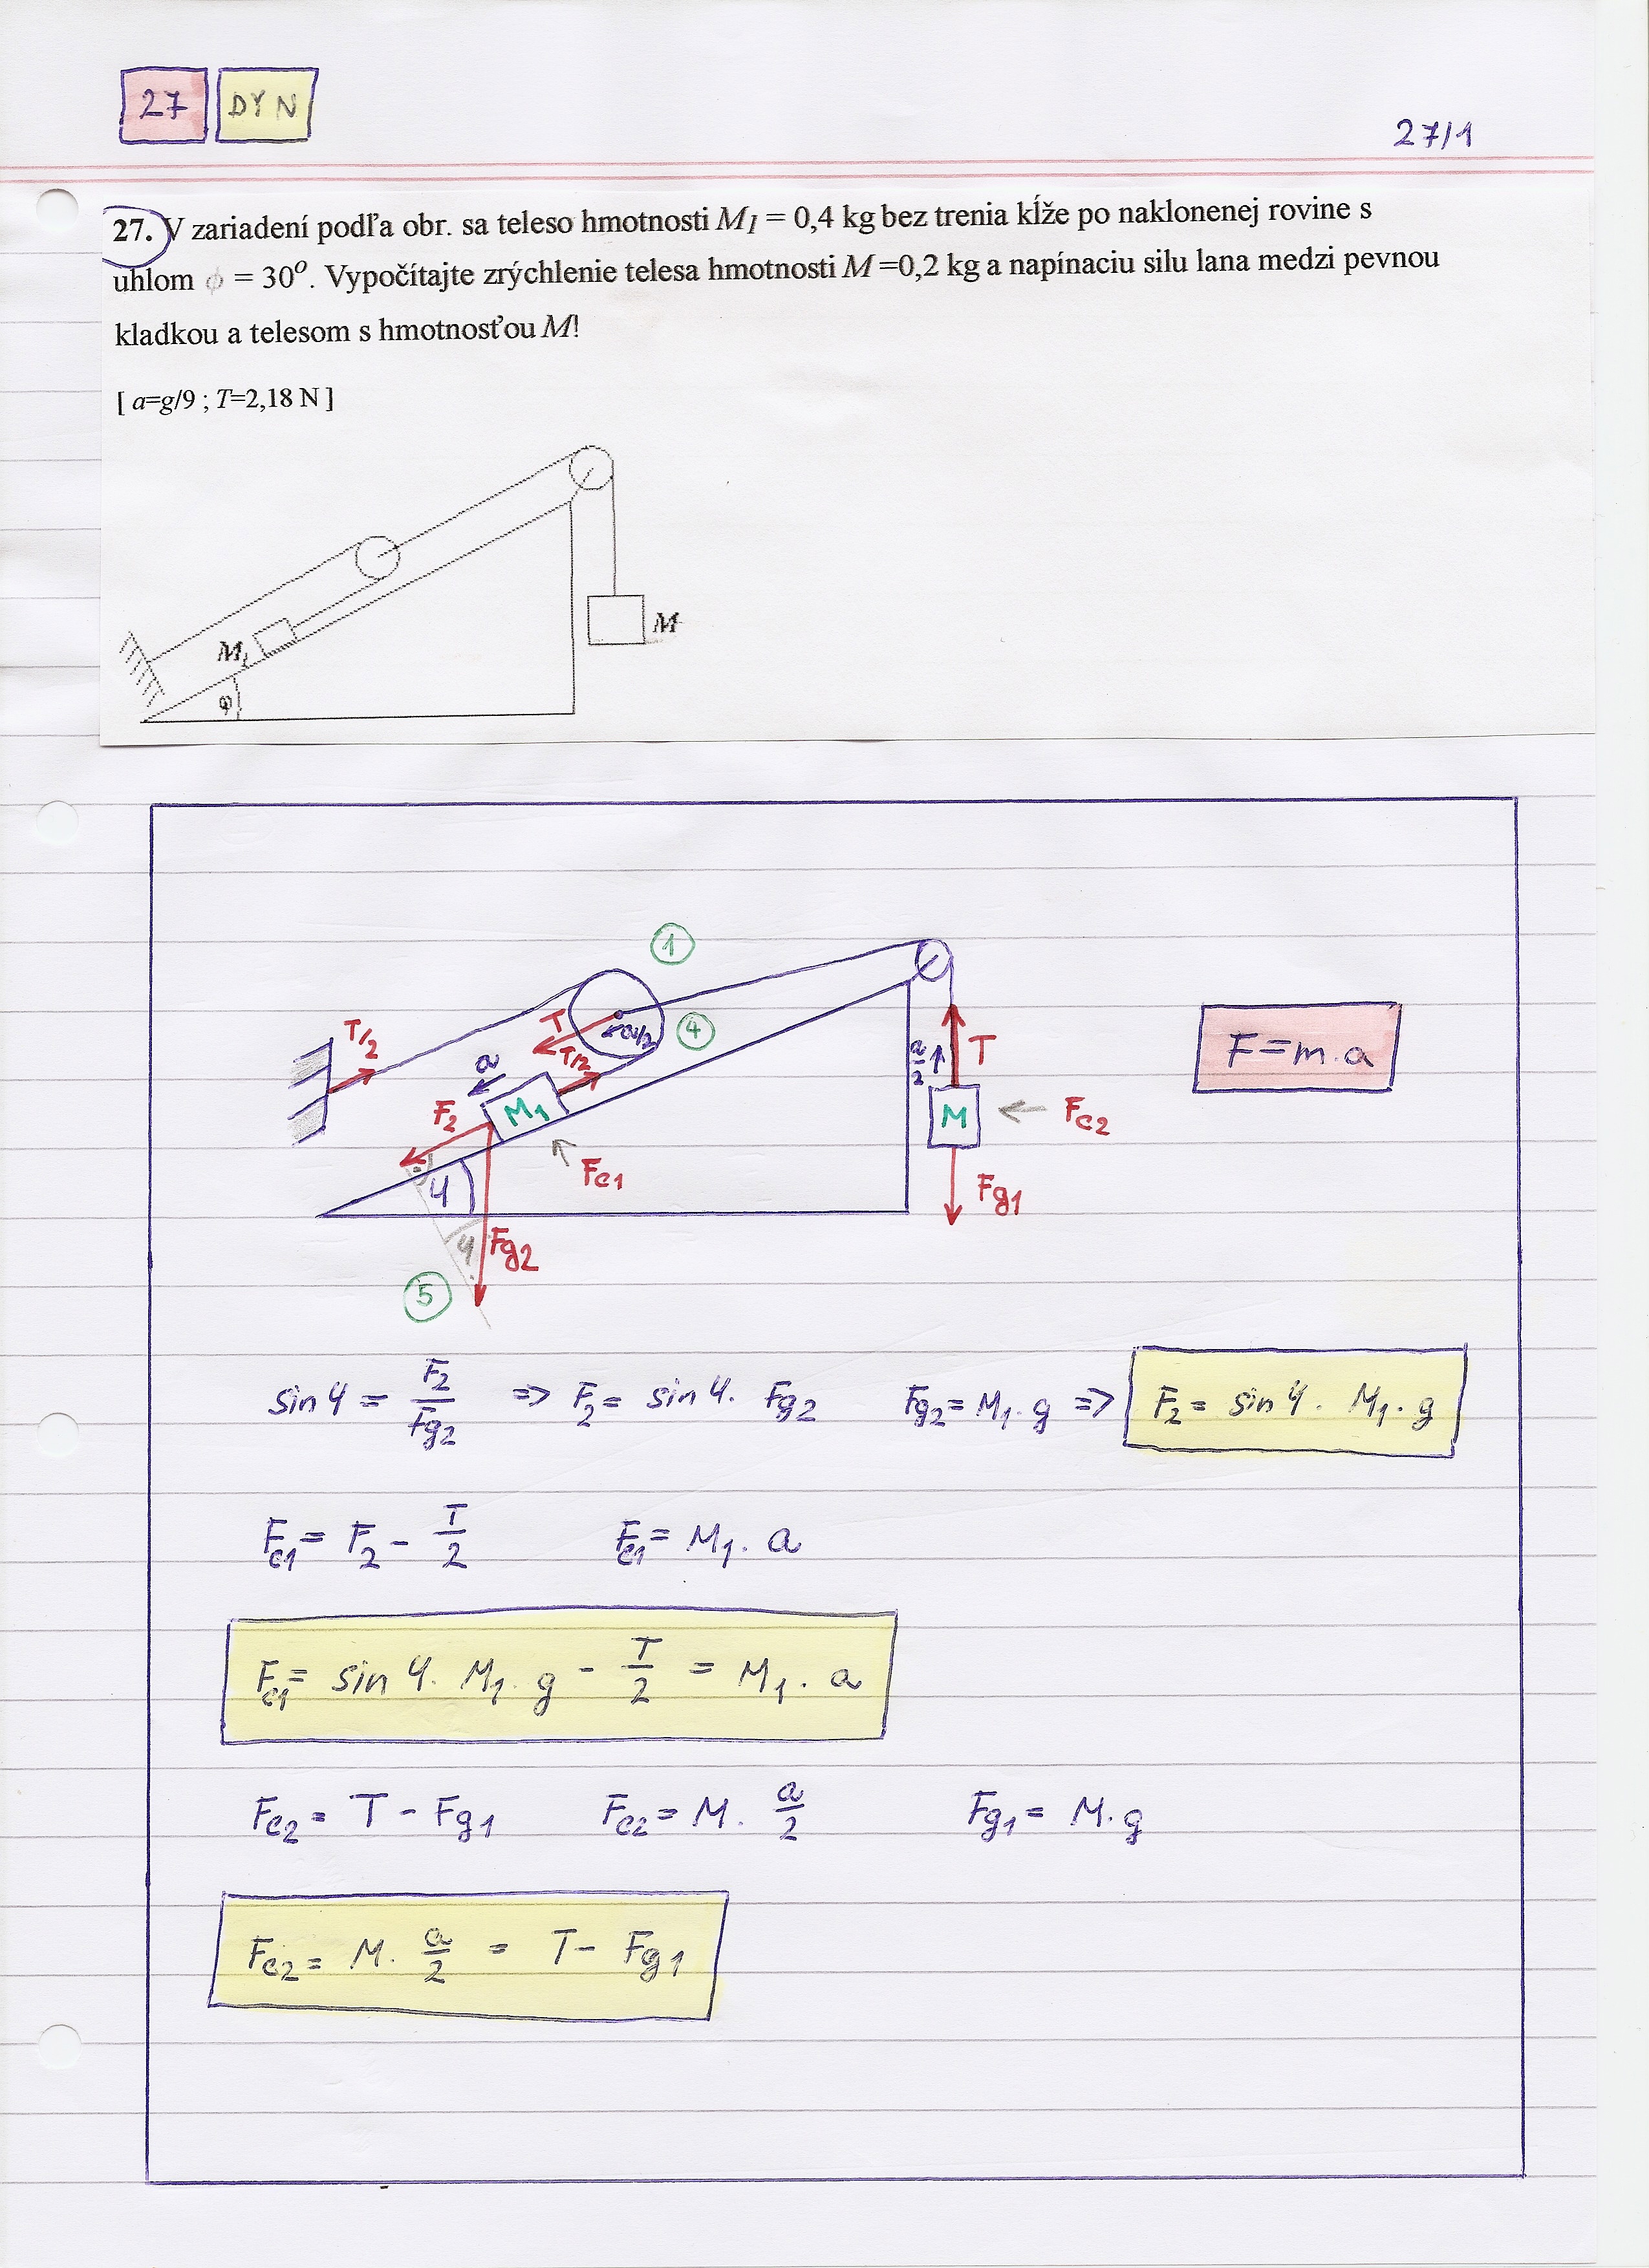 27 DYN
27/1
27. V zariadení podľa obr. sa teleso hmotnosti M1 = 0,4 kg bez trenia kĺže po naklonenej rovine s
uhlom ϕ = 30°. Vypočítajte zrýchlenie telesa hmotnosti M =0,2 kg a napínaciu silu lana medzi pevnou
kladkou a telesom s hmotnosťou M!
[ a=g/9 ; T=2,18 N ]
M1
M
φ
1
T/2
T
a/2
4
a
T/2
a/2
T
F = m.a
F2
M1
M
Fc2
Fc1
φ
Fg1
φ
Fg2
5
sin φ = F2/Fg2 => F2 = sin φ. Fg2 Fg2 = M1. g => F2 = sin φ. M1. g
Fc1 = F2 - T/2 Fc1 = M1. a
Fc1 = sin φ. M1. g - T/2 = M1. a
Fc2 = T - Fg1 Fc2 = M. a/2 Fg1 = M. g
Fc2 = M. a/2 = T - Fg1